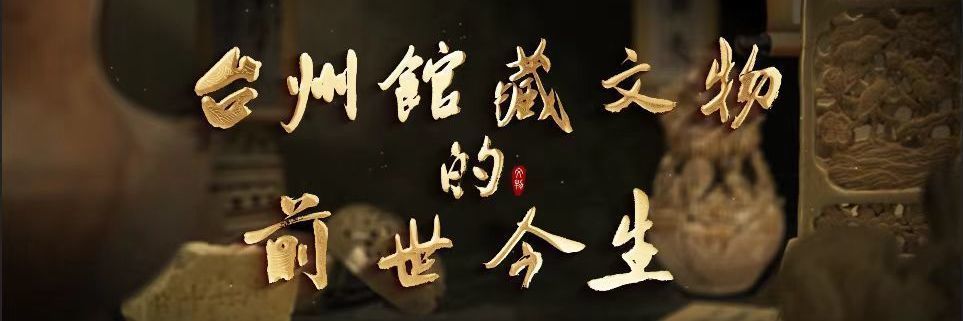 台州館藏文物
的
前世今生